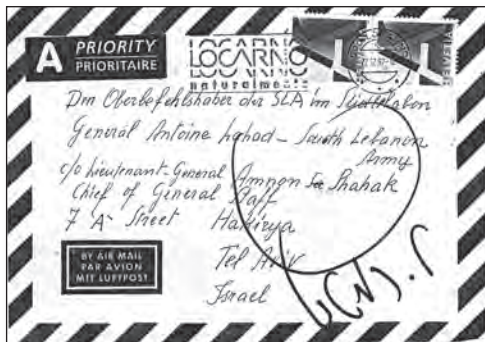 A PRIORITY
PRIORITAIRE
LOCARNO
naturalmente
HELVETIA
Dem Oberbefehlshaber der SLA im Südlibanon
General Antoine Lahad - South Lebanon
Army
c/o Lieutenant-General Amnon Shahak
Chief of General Staff
7 "A" Street Hakirya
Tel Aviv
Israel
BY AIR MAIL
PAR AVION
MIT LUFTPOST